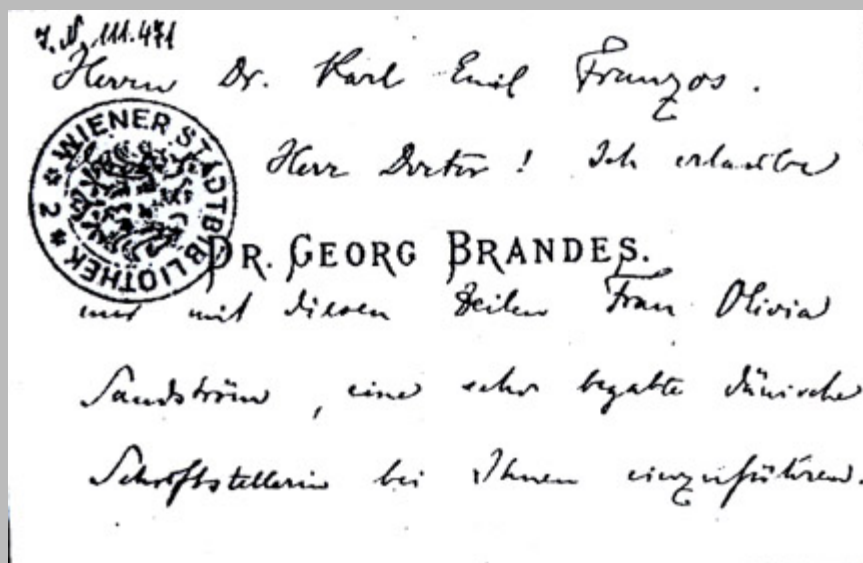 J.N. 111.471
Herrn Dr. Karl Emil Franzos.
WIENER STADTBIBLIOTHEK * 2 *
Herr Doctor! Ich erlaube
DR. GEORG BRANDES.
mir mit diesen Zeilen Frau Olivia
Sandström, eine sehr begabte dänische
Schriftstellerin bei Ihnen einzuführen.